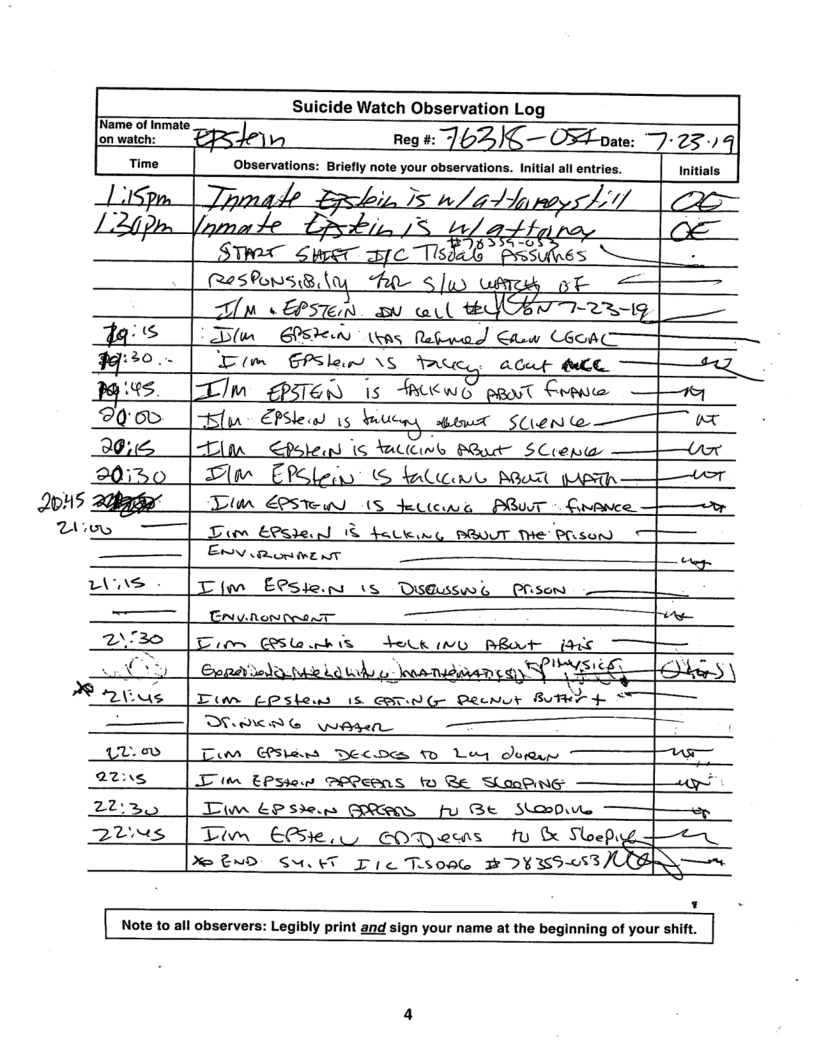 Suicide Watch Observation Log
Name of Inmate on watch: EPStein Reg #: 76318-054 Date: 7.23.19
Time Observations: Briefly note your observations. Initial all entries. Initials
1:15pm Inmate Epstein is w/ attorney still OE
1:30pm Inmate Epstein is w/ attorney OE
START SHIFT I/C Tisdale #78359-053 ASSUMES
RESPONSIBility for S/W WATCH OF
I/M EPSTEIN IN cell 7-23-19
19:15 I/M EPStein HAS Returned From LEGAL
19:30 I/M EPStein IS talking about
19:45 I/M EPSTEIN is talking ABOUT Finance
20:00 I/M EPStein is talking about SCIENCE
20:15 I/M EPStein is talking About SCIENCE
20:30 I/M EPStein IS talking About MATH
20:45 I/M EPSTEIN IS talking ABOUT FINANCE
21:00 I/M EPStein is talking ABOUT THE PRISON
ENVIRONMENT
21:15 I/M EPStein IS Discussing PRISON
ENVIRONMENT
21:30 I/M EPStein is talking About His
MATHEMATICS PHYSICS
21:45 I/M EPStein IS EATING PEANUT BUTTER +
DRINKING WATER
22:00 I/M EPStein DECIDES TO Lay down
22:15 I/M EPStein APPEARS to BE SLEEPING
22:30 I/M EPStein APPEARS to BE Sleeping
22:45 I/M EPStein appears to Be Sleeping
END SHIFT I/C Tisdale #78359-053
Note to all observers: Legibly print and sign your name at the beginning of your shift.
4